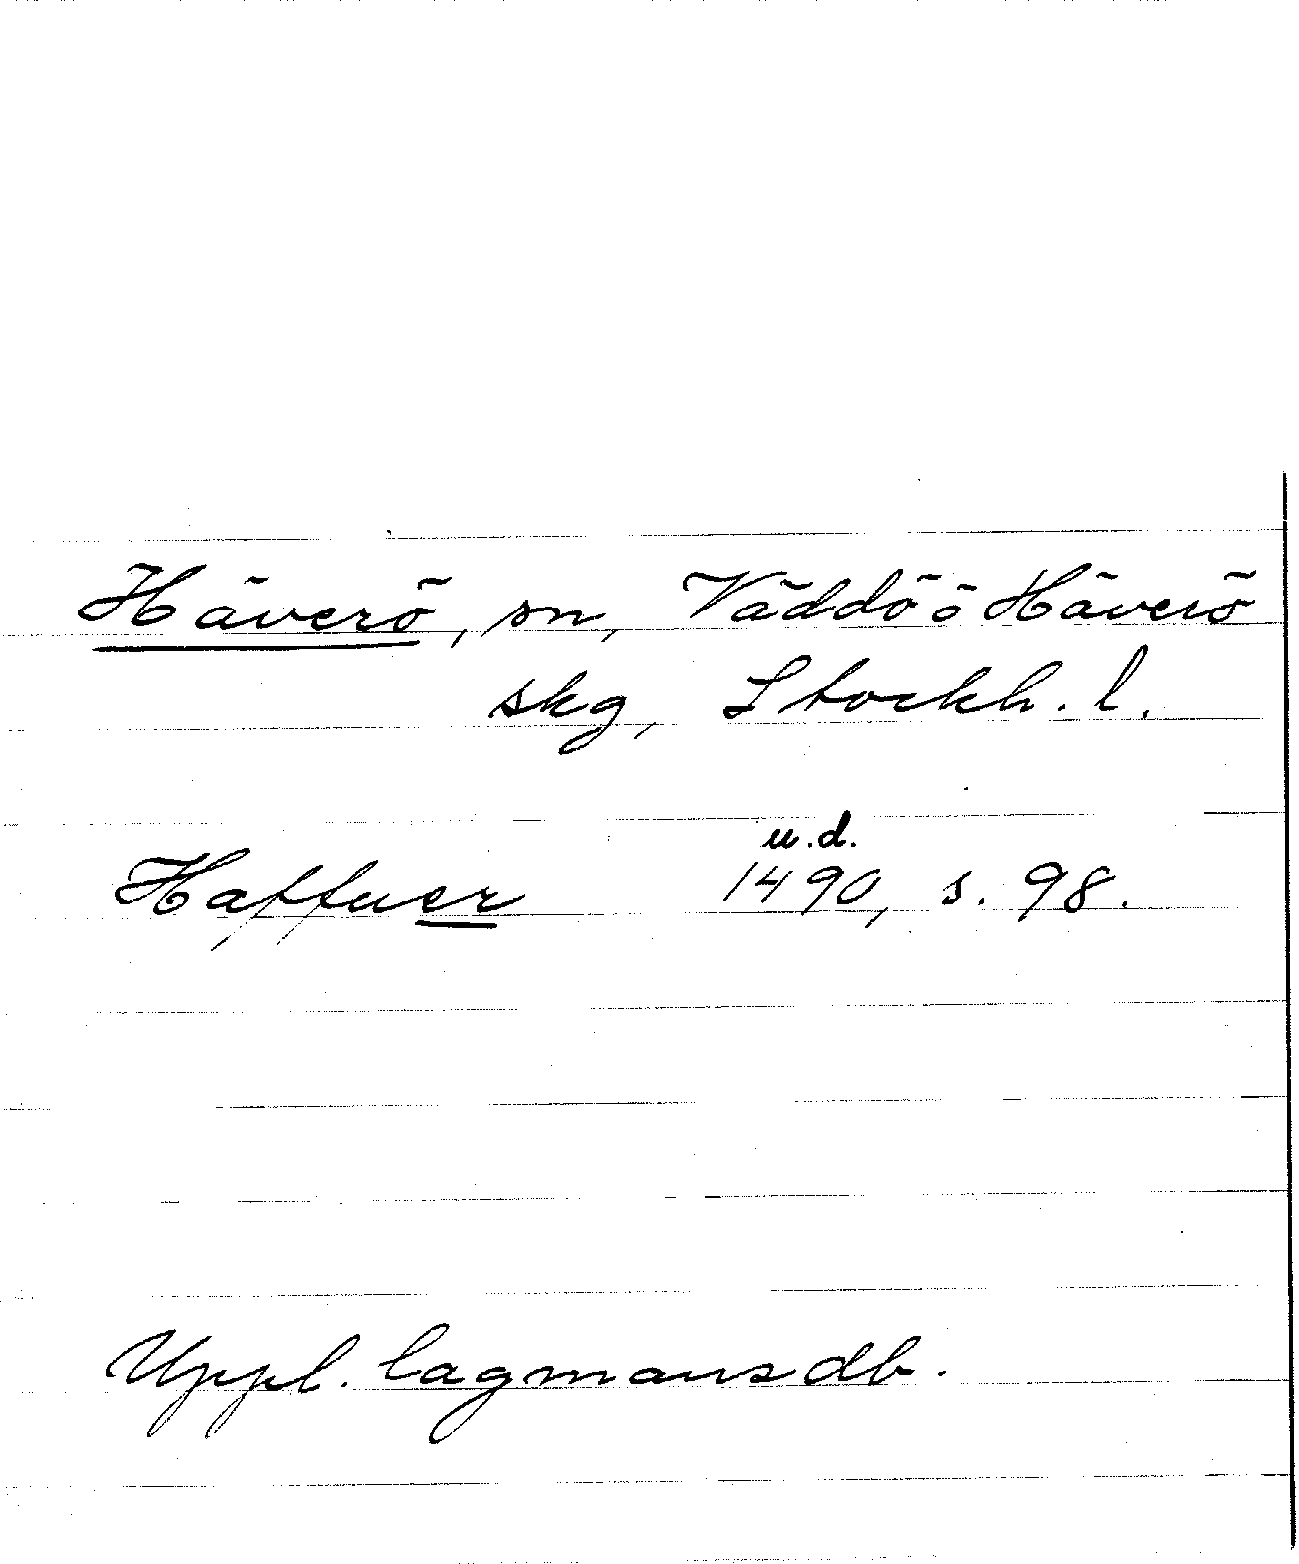 Häverö, sn, Väddö o Häverö
skg, Stockh. l.
u.d.
Haffuer 1490, s. 98.
Uppl. lagmansdb.